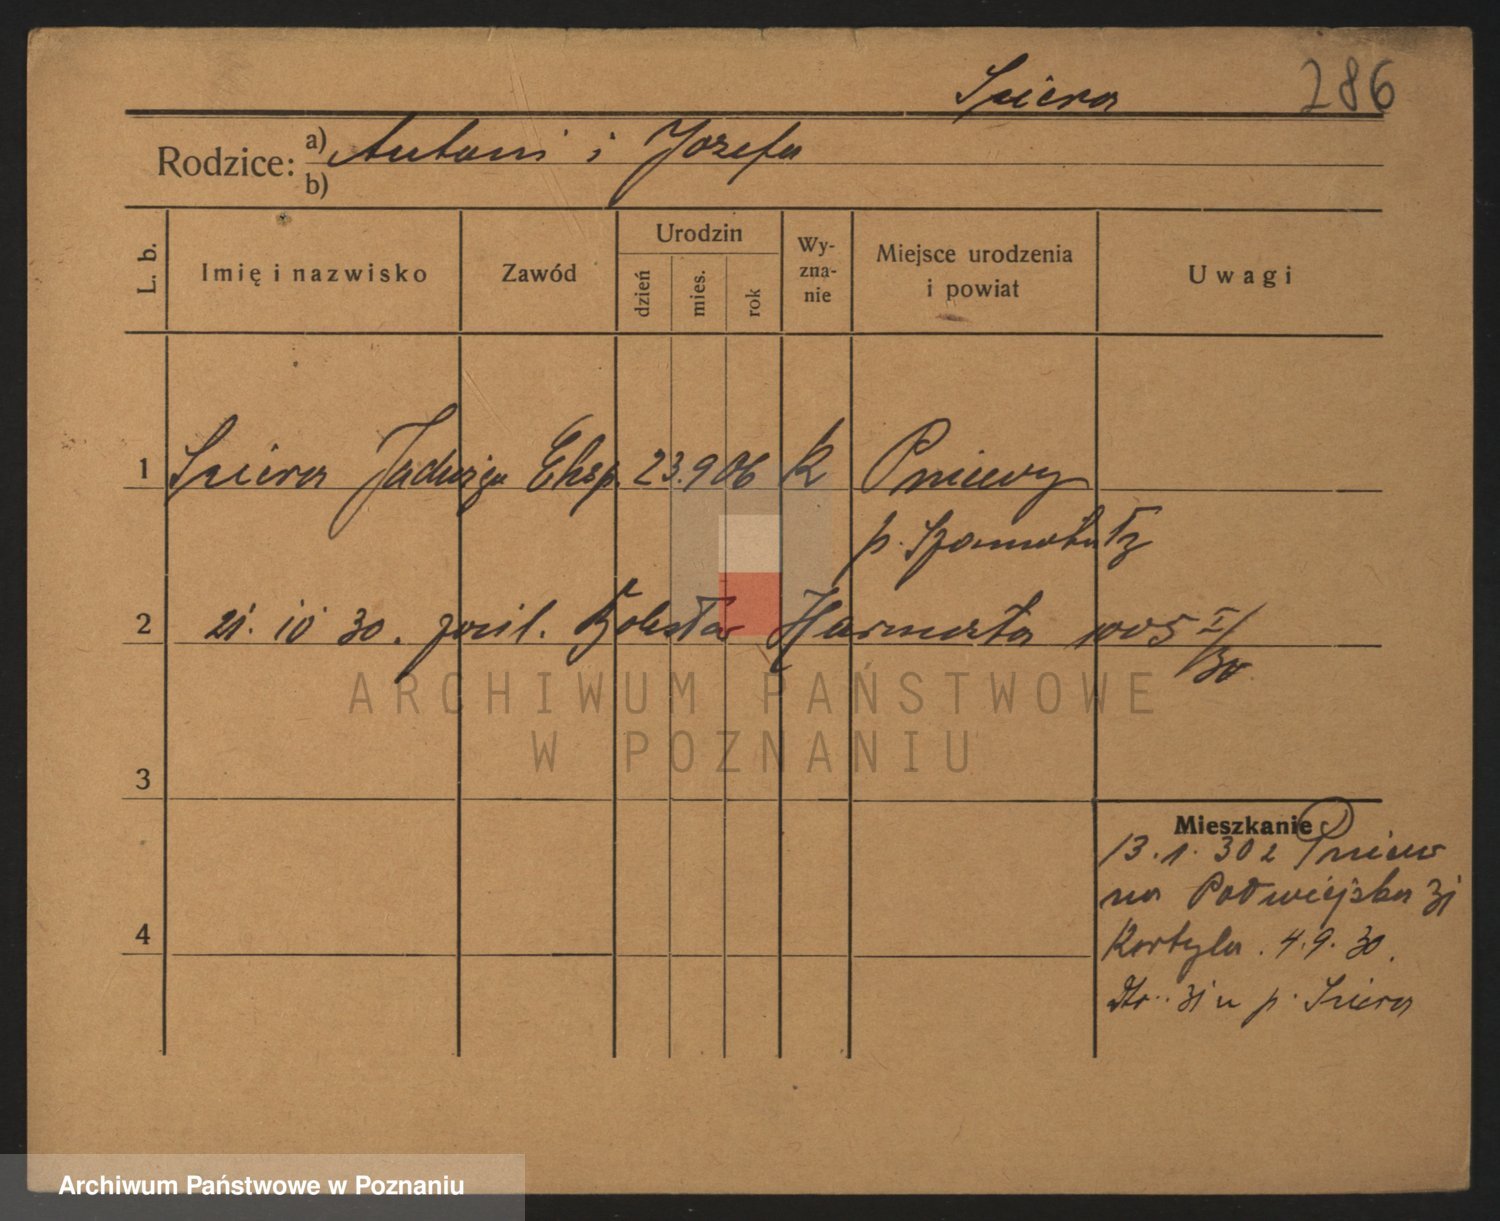 286
Rodzice: a) Antoni i Józefa
b)
L. b.
Imię i nazwisko
Zawód
Urodzin
dzień
mies.
rok
Wy-
zna-
nie
Miejsce urodzenia
i powiat
Uwagi
1 Jadwiga Eksp. 23. 9 06 k Pniewy
p. Szamotuły
2 21. 10 30. Bolesław 1005 I/
30
3
Mieszkanie
13. 1. 30 z Pniew
na Podwiejska 31
4
4. 9. 30.
31 u p.
ARCHIWUM PAŃSTWOWE
W POZNANIU
Archiwum Państwowe w Poznaniu